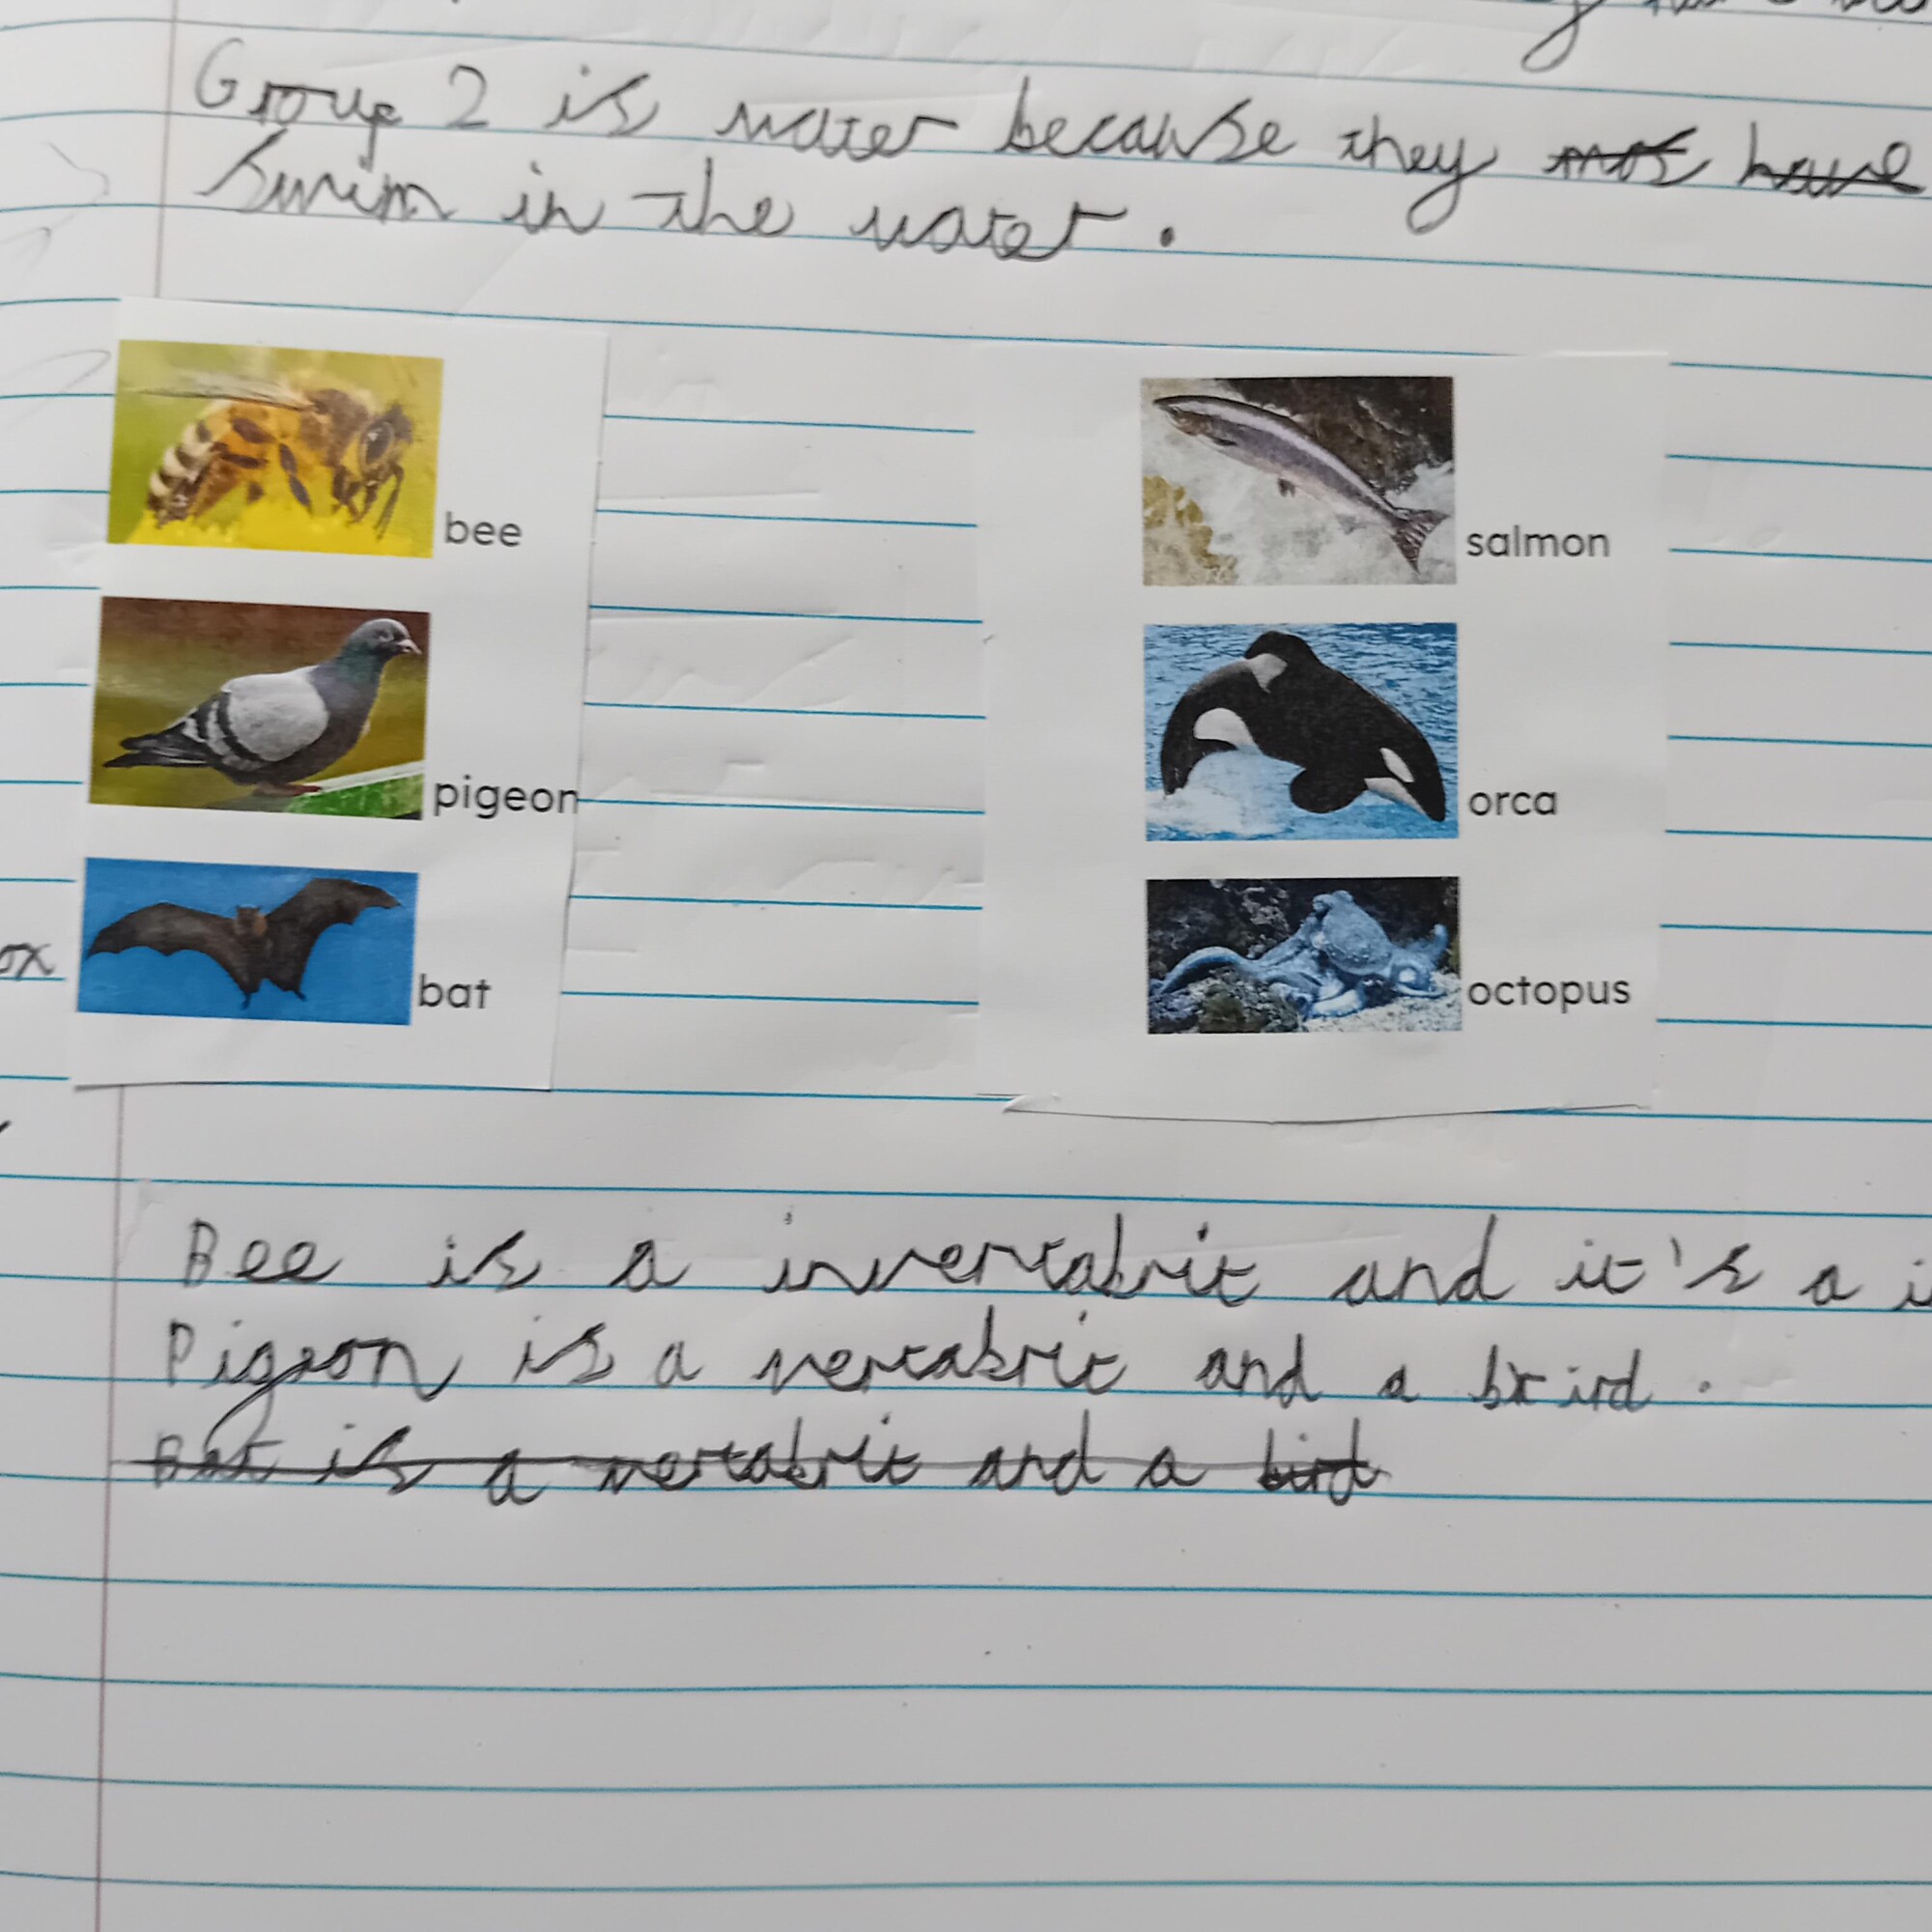 Group 2 is water because they have
swim in the water.
bee
salmon
pigeon
orca
bat
octopus
ox
Bee is a invertabrit and it's a i
Pigeon is a vertabrit and a bird.
Bat is a vertabrit and a bird